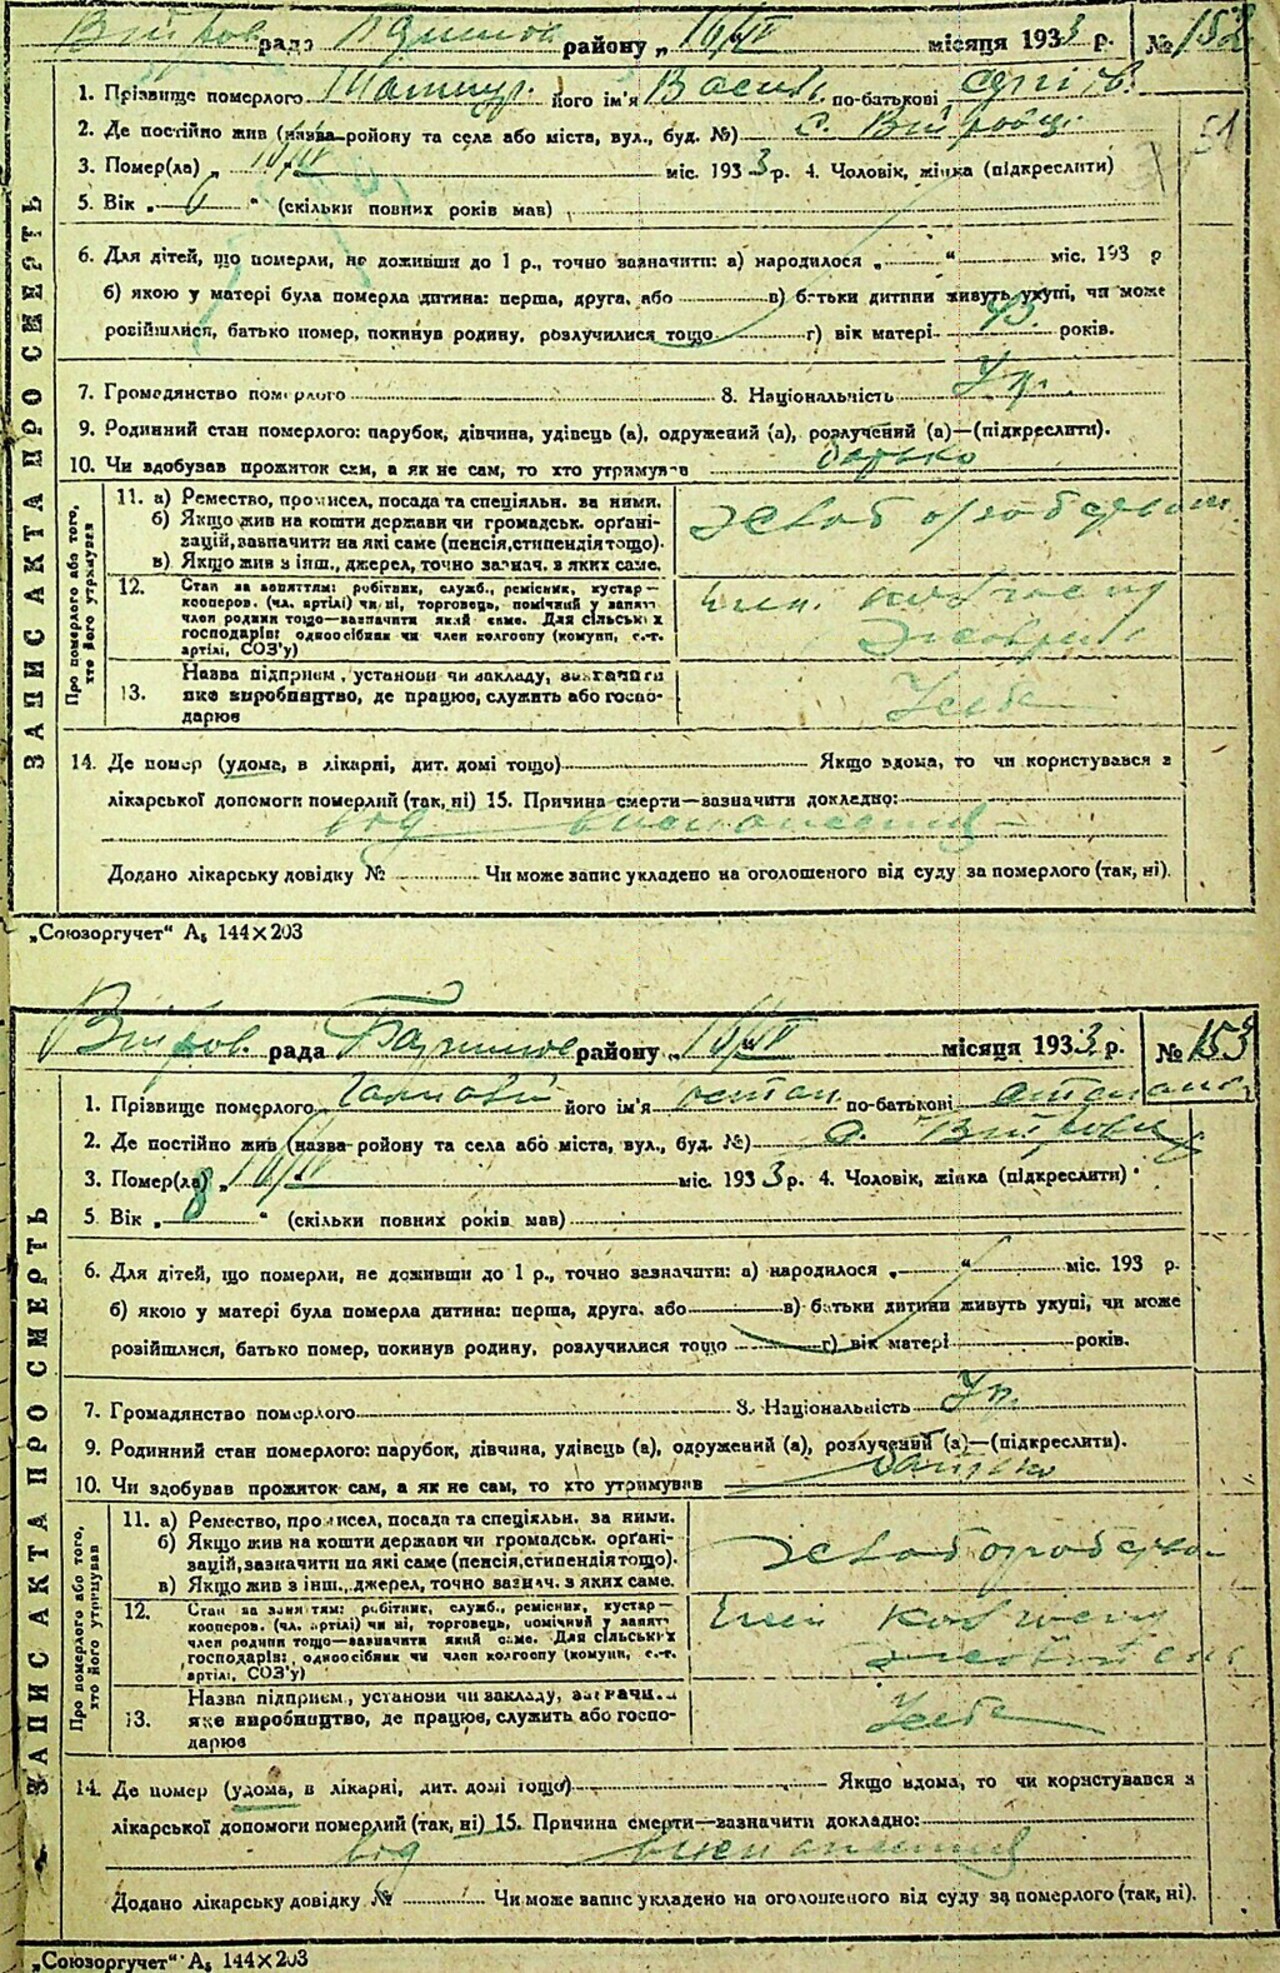 рада району „16/IV місяця 1933 р. № 152
ЗАПИС АКТА ПРО СМЕРТЬ
1. Прізвище померлого його ім'я Васил. по-батькові
2. Де постійно жив (назва району та села або міста, вул., буд. №) с.
3. Помер(ла) „ міс. 1933 р. 4. Чоловік, жінка (підкреслити)
5. Вік „ “ (скільки повних років мав)
6. Для дітей, що померли, не доживши до 1 р., точно зазначити: а) народилося „ “ міс. 193 р
б) якою у матері була померла дитина: перша, друга, або в) батьки дитини живуть укупі, чи може
розійшлися, батько помер, покинув родину, розлучилися тощо г) вік матері років.
7. Громадянство померлого 8. Національність Укр.
9. Родинний стан померлого: парубок, дівчина, удівець (а), одружений (а), розлучений (а)—(підкреслити).
10. Чи здобував прожиток сам, а як не сам, то хто утримував батько
Про померлого або того, хто його утримував
11. а) Ремество, промисел, посада та спеціяльн. за ними.
б) Якщо жив на кошти держави чи громадськ. орґані-
зацій, зазначити на які саме (пенсія, стипендія тощо).
в) Якщо жив з інш., джерел, точно зазнач. з яких саме.
хлібороб
12. Стан за заняттям: робітник, служб., ремісник, кустар—
кооперов. (чл. артілі) чи ні, торговець, помічний у занятт
член родини тощо—зазначити який саме. Для сільських
господарів: одноосібник чи член колгоспу (комуни, с.-г.
артілі, СОЗ'у)
член
13. Назва підприєм., установи чи закладу, зазначити
яке виробництво, де працює, служить або госпо-
дарює
14. Де помер (удома, в лікарні, дит. домі тощо) Якщо вдома, то чи користувався з
лікарської допомоги померлий (так, ні) 15. Причина смерти—зазначити докладно:
від виснаження
Додано лікарську довідку № Чи може запис укладено на оголошеного від суду за померлого (так, ні).
„Союзоргучет“ А₅ 144×203
рада району „16/IV місяця 1933 р. № 153
ЗАПИС АКТА ПРО СМЕРТЬ
1. Прізвище померлого його ім'я остап по-батькові
2. Де постійно жив (назва району та села або міста, вул., буд. №) с.
3. Помер(ла) „ 16/IV міс. 1933 р. 4. Чоловік, жінка (підкреслити)
5. Вік „ 8 “ (скільки повних років мав)
6. Для дітей, що померли, не доживши до 1 р., точно зазначити: а) народилося „ “ міс. 193 р.
б) якою у матері була померла дитина: перша, друга, або в) батьки дитини живуть укупі, чи може
розійшлися, батько помер, покинув родину, розлучилися тощо г) вік матері років.
7. Громадянство померлого 8. Національність Укр.
9. Родинний стан померлого: парубок, дівчина, удівець (а), одружений (а), розлучений (а)—(підкреслити).
10. Чи здобував прожиток сам, а як не сам, то хто утримував батько
Про померлого або того, хто його утримував
11. а) Ремество, промисел, посада та спеціяльн. за ними.
б) Якщо жив на кошти держави чи громадськ. орґані-
зацій, зазначити на які саме (пенсія, стипендія тощо).
в) Якщо жив з інш., джерел, точно зазнач. з яких саме.
хлібороб
12. Стан за заняттям: робітник, служб., ремісник, кустар—
кооперов. (чл. артілі) чи ні, торговець, помічний у занятт
член родини тощо—зазначити який саме. Для сільських
господарів: одноосібник чи член колгоспу (комуни, с.-г.
артілі, СОЗ'у)
член
13. Назва підприєм., установи чи закладу, зазначити
яке виробництво, де працює, служить або госпо-
дарює
14. Де помер (удома, в лікарні, дит. домі тощо) Якщо вдома, то чи користувався з
лікарської допомоги померлий (так, ні) 15. Причина смерти—зазначити докладно:
від виснаження
Додано лікарську довідку № Чи може запис укладено на оголошеного від суду за померлого (так, ні).
„Союзоргучет“ А₅ 144×203